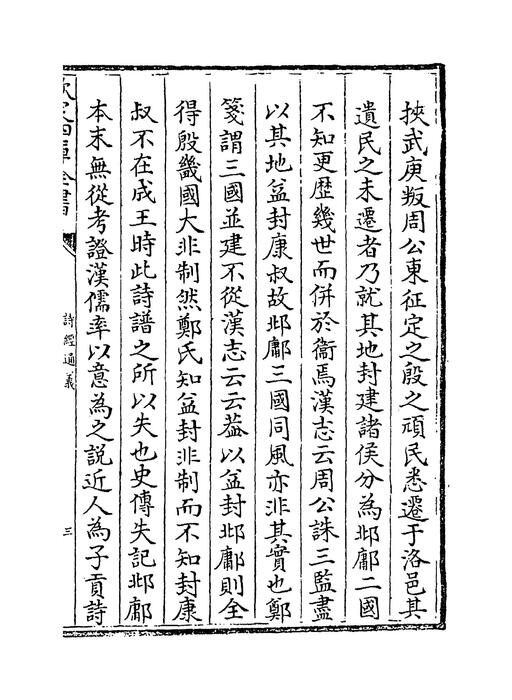 挾武庚叛周公東征定之殷之頑民悉遷于洛邑其
遺民之未遷者乃就其地封建諸侯分為邶鄘二國
不知更歴幾世而併於衞焉漢志云周公誅三監盡
以其地益封康叔故邶鄘三國同風亦非其實也鄭
箋謂三國並建不從漢志云云葢以益封邶鄘則全
得殷畿國大非制然鄭氏知益封非制而不知封康
叔不在成王時此詩譜之所以失也史傳失記邶鄘
本末無從考證漢儒率以意為之説近人為子貢詩
欽定四庫全書
詩經通義
三